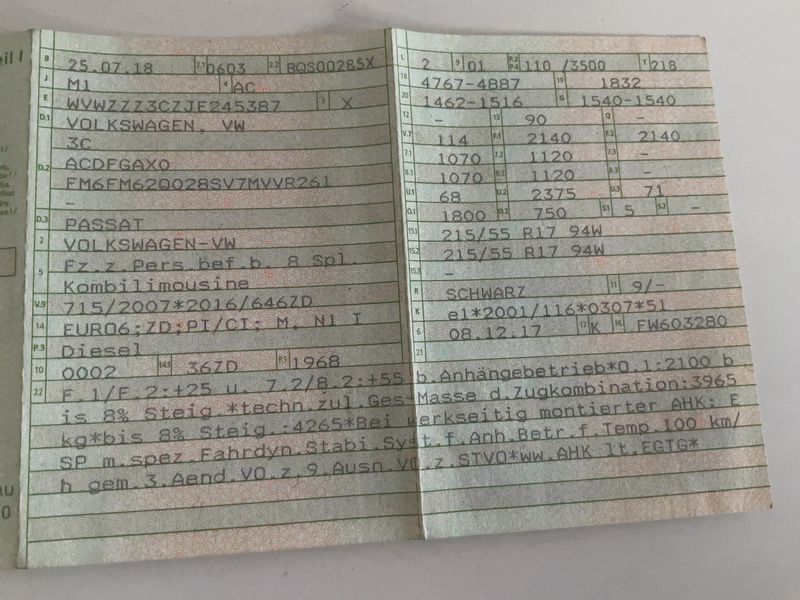 B 25.07.18 2.1 0603 2.2 BQS00285X
J M1 4 AC
E WVWZZZ3CZJE245387 3 X
D.1 VOLKSWAGEN, VW
3C
D.2 ACDFGAX0
FM6FM62Q028SV7MVVR261
-
D.3 PASSAT
2 VOLKSWAGEN-VW
5 Fz.z.Pers.bef.b. 8 Spl.
Kombilimousine
V.9 715/2007*2016/646ZD
14 EURO6;ZD;PI/CI; M, N1 I
P.3 Diesel
10 0002 14.1 36ZD P.1 1968
L 2 9 01 P.2 P.4 110 /3500 T 218
18 4767-4887 19 1832
20 1462-1516 G 1540-1540
12 - 13 90 Q -
V.7 114 F.1 2140 F.2 2140
7.1 1070 7.2 1120 7.3 -
8.1 1070 8.2 1120 8.3 -
U.1 68 U.2 2375 U.3 71
O.1 1800 O.2 750 S.1 5 S.2 -
15.1 215/55 R17 94W
15.2 215/55 R17 94W
15.3 -
R SCHWARZ 11 9/-
K e1*2001/116*0307*51
6 08.12.17 17 K 16 FW603280
21
22 F.1/F.2:+25 u. 7.2/8.2:+55 b.Anhängebetrieb*O.1:2100 b
is 8% Steig.*techn.zul.Ges-Masse d.Zugkombination:3965
kg*bis 8% Steig.:4265*Bei werkseitig montierter AHK: E
SP m.spez.Fahrdyn.Stabi.Syst.f.Anh.Betr.f.Temp.100 km/
h gem.3.Aend.VO.z.9.Ausn.VO.z.STVO*ww.AHK lt.EGTG*